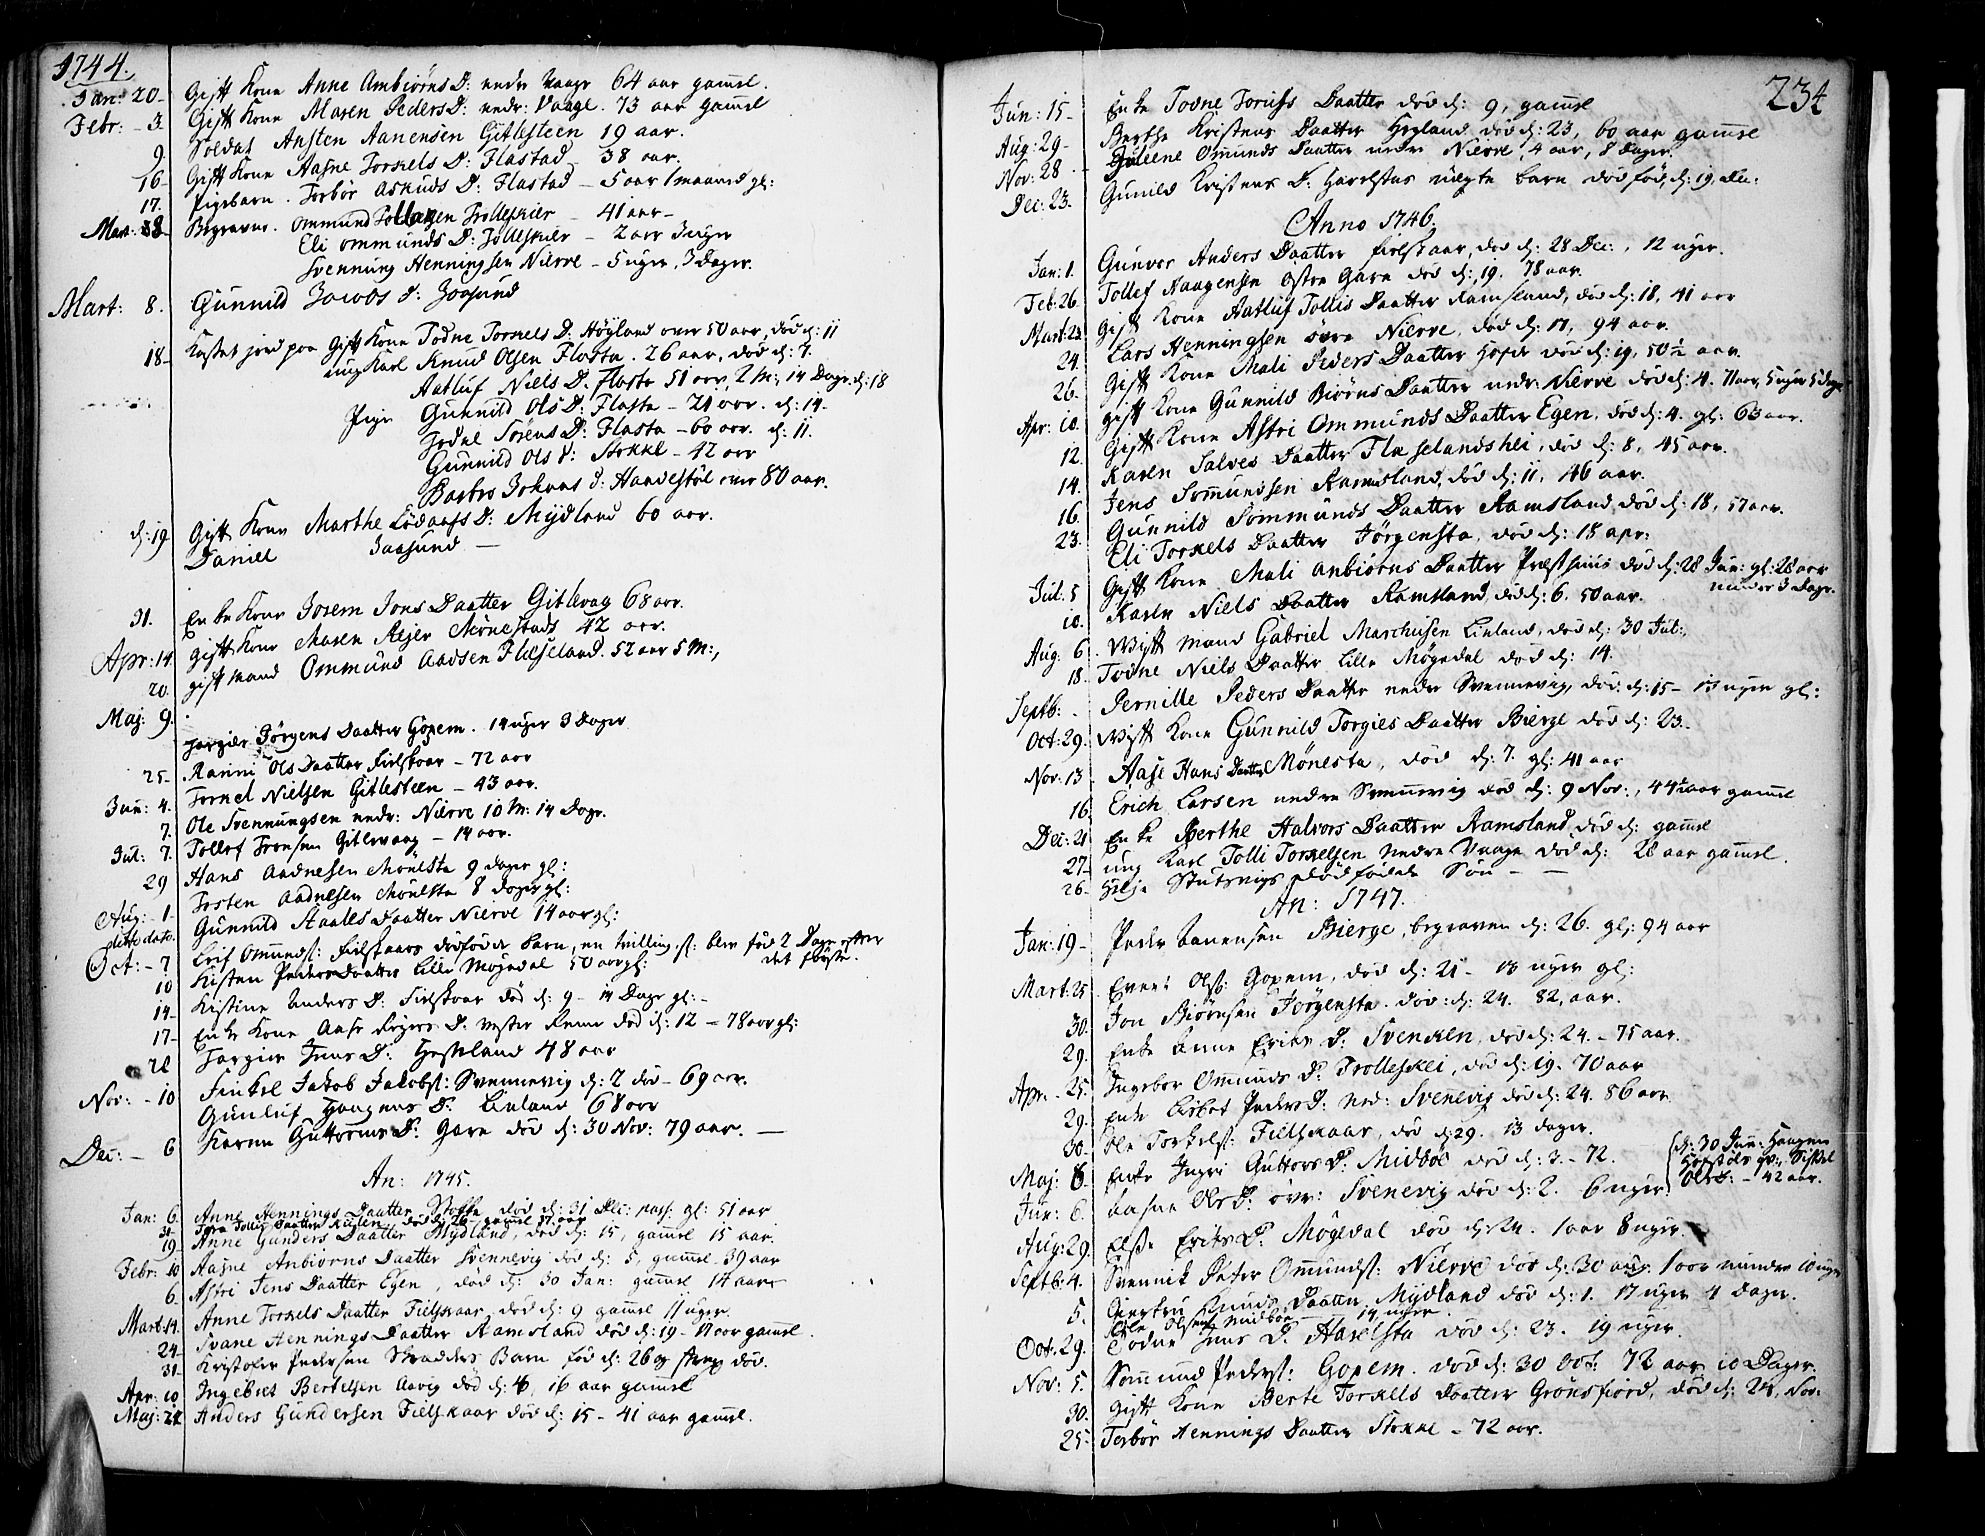 1744.
Jan: 20 - Gift Kone Anne Ambiörns D: nedre Vaage 64 aar gamel.
Febr: - 3 Gift Kone Maren Peders D: nedr: Vaage. 73 aar gamel
9. Soldat Ansten Aanensen Gitlesteen 19 aar.
16 - Gift Kone Aasne Torkels D: Flastad - 38 aar.
17. Pigebarn. Torbör Asmuds D: Flastad - 5 aar 1 maaned gl:
Mart: 8 - Begravne. Ommund Trolleskier - 41 aar -
Eli Ommunds D: Tolleskier - 2 aar
Svennung Henningsen Nierve - 5 uger, 3 Dager.
Mart: 8. Gunnild Jacobs D: Joasund
18 - Kastet jord paa Gift Kone Todne Torkels D. Högland over 50 aar, död d: 11
ung Karl Knud Olsen Flosta. 26 aar, död d: 7.
Aatluf Niels D. Flosta 51 aar, 2 M:, 14 Dage. d: 18
Pige Gunnild Ols D: Flosta - 21 aar. d: 14.
Sörens D: Flosta - 60 aar. d: 11.
Gunnild Ols D: Stokke - 42 aar
Barbro Johans D: Haavestöl over 80 aar.
d: 19 Gift Kone Marthe D: Mÿdland 60 aar.
Daniel Joasund -
31. Enke Kone Josem Jons Daatter Gitlevag 68 aar.
Apr: 14. Gift Kone Maren Rejer Mönestads 42 aar.
20. gift Mand Ommund Aadsen Flæseland. 52 aar 5 M:,
Maj: 9. Jörgens Daatter Gopem. 14 uger 3 Dager
25 - Ranni Ols Daatter Fielskaar - 72 aar
Jun: 4. Torkel Nielsen Gitlesteen - 43 aar.
7. Ole Svennungsen nedr: Nierve 10 M: 14 Dage.
Jul: 7. Tollef Gitlevaag - 14 aar.
29 Hans Aadnesen Mönesta 9 dager gl:
Aug: - 1 - Josten Aadnesen Mönesta 8 dager gl:
ditto dato. Gunnild Aaalls Daatter Nierve 14 aar gl:
Oct: - 7 Leif Omunds: Fielskaars dödföde Barn, en Tvilling, blev föd 2 Dage efter det förste.
10 Kisten Peders Daatter Lille Mögedal 50 aar gl:
14 - Kistine Anders D: Fielskaar död d: 9 - 14 Dage gl: -
17 - Enke Kone Aase D: vester død d: 12 - 78 aar gl:
28 Jens D: Heskeland 48 aar
Nov: - 10 Jakob Jakobs: Svennevig d: 2 död - 69 aar.
Gunluf Haagens D: Linland 68 aar
Dec: - 6 Karen Guttorms D: Gare död d: 30 Nov: 79 aar. -
An: 1745.
Jan: 6. Anne Hennings Daatter död d: 31 Dec: gl: 51 aar
31 Tollis Daatter död d: 26
19 - Anne Gunders Daatter Mÿdland, död d: 15, gamel 15 aar.
Febr: 10 Aasne Anbiorns Daatter Svennevig död d: 5, gamel. 39 aar
6. Astri Jens Daatter Egen, död d: 30 Jan: gamel 14 aar
Mart: 14. Anne Torkels Daatter Fielskaar, död d: 9 gamel 11 uger
24 - Svane Hennings Daatter Ramsland död d: 19 - 11 aar gamel.
31. Kristofer Pedersen Skredders Barn föd d: 26 og strax död.
Apr: 10 Ingebret Bertelsen Aavig död d: 6, 16 aar gamel
Maj: 24 Anders Gundersen Fielskaar död d: 15 - 41 aar gamel.
234
Jun: 15 - Enke Todne Daatter död d: 9, gamel
Aug: 29 - Berthe Kristens Daatter Hegland död d: 23, 60 aar gamel
Nov: 28 - Omunds Daatter nedre Nierve, 4 aar, 8 Dager.
Dec: 23. Gunild Kristens D: Harelstas uægte barn dödföd, d: 19. Dec:
Anno 1746.
Jan: 1. Gunvor Anders Daatter Fielskaar, död d: 28 Dec:, 12 uger.
Feb: 26. Tollef Haagensen Ostre Gare död d: 19. 78 aar.
Mart: 23 Gift Kone Aatluf Tollis Daatter Ramsland, död d: 18, 41 aar
24. Lars Henningsen övre Nierve, död d: 17, 94 aar.
26. Gift Kone Mali Peders Daatter död d: 19, 50 ½ aar.
Apr: 10. gift Kone Gunnild Biörns Daatter nedr: Nierve död d: 4. 71 aar, 5 uger 5 dage
12. Gift Kone Astri Ommunds Daatter Egen, död d: 4. gl: 63 aar.
14. Karen Salves Daatter Flæselandshei, död d: 8, 45 aar.
16. Jens Sommundsen Ramsland, död d: 11, 46 aar.
23. Gunnild Sommunds Daatter Ramsland död d: 18, 57 aar.
Eli Torkels Daatter Jörgensta, död d: 18 apr:
Jul: 5 Gift Kone Mali Anbiorns Daatter Præsthuus död d: 28 Jun: gl: 28 aar minder 3 Dage.
10. Karen Niels Daatter Ramsland, död d: 6. 50 aar.
Aug: 6. Gift Mand Gabriel Marchusen Linland, död d: 30 Jul:,
18. Todne Niels Daatter Lille Mögedal död d: 14.
Septb: - Pernille Peders Daatter nedre Svennevig, död d: 15 - 13 uger gl:
Oct: 29. Gift Kone Gunnild Torgies Daatter Bierge död d: 23.
Nov: 13 - Aase Hans Daatter Mönesta, död d: 7. gl: 41 aar
16. Erich Larsen nedre Svennevig död d: 9 Nov:, 44 ½ aar gamel
Dec: 21 Enke Berthe Halvors Daatter Ramsland, död d: gamel
27 - ung Karl Tolli Torkelsen nedre Vaage död d: 28 aar gamel.
26 - Helje Stutevigs dödfödde Sön -
An: 1747.
Jan: 19 - Peder Aanensen Bierge, begraven d: 26. gl: 94 aar
Mart: 25. Even: Ols: Gopem, död d: 21 - 18 uger gl:
30. Jon Biörnsen Jörgensta. död: d: 24. 82, aar.
29. Enke Anne Eriks D. Svenken, död d: 24. - 75 aar.
Apr: - 25. Ingebor Omunds D: Trolleskei, död d: 19. 70 aar
29. Enke Lisbet Peders D: Ned: Svenevig död d: 24. 86 aar
30. Ole Torkels: Fielskaar, död d: 29. 13 dager.
Maj: 8. Enke Ingri Guttors D. Midböe död d: 3. - 72.
{d: 30 Jun: Haagen Sissel Ols D: - 42 aar.
Jun: 6. Aasne Ols D: övr: Svenevig död d: 2. 6 uger
Aug: 29. Else Eriks D. Mögedal död d: 24. 1 aar 8 uger.
Septb: 4. Peter Omunds: Nierve död d: 30 aug. 1 aar minder 10 uger
5. Giertru Knuds Daatter Mÿdland död d: 1. 17 uger 4 dager.
Ole Olsen Midböe 14 uger.
Oct: 29. Todne Jens D. Haselsta död d: 23. 19 uger.
Nov: 5. Somund Peders: Gopem. död d: 30 Oct: 72 aar 10 Dager.
30. Gift Kone Berte Torkels Daatter Grönsfiord, död d: 24, Nov:
25. Torbör Hennings Daatter Stokke - 72 aar.